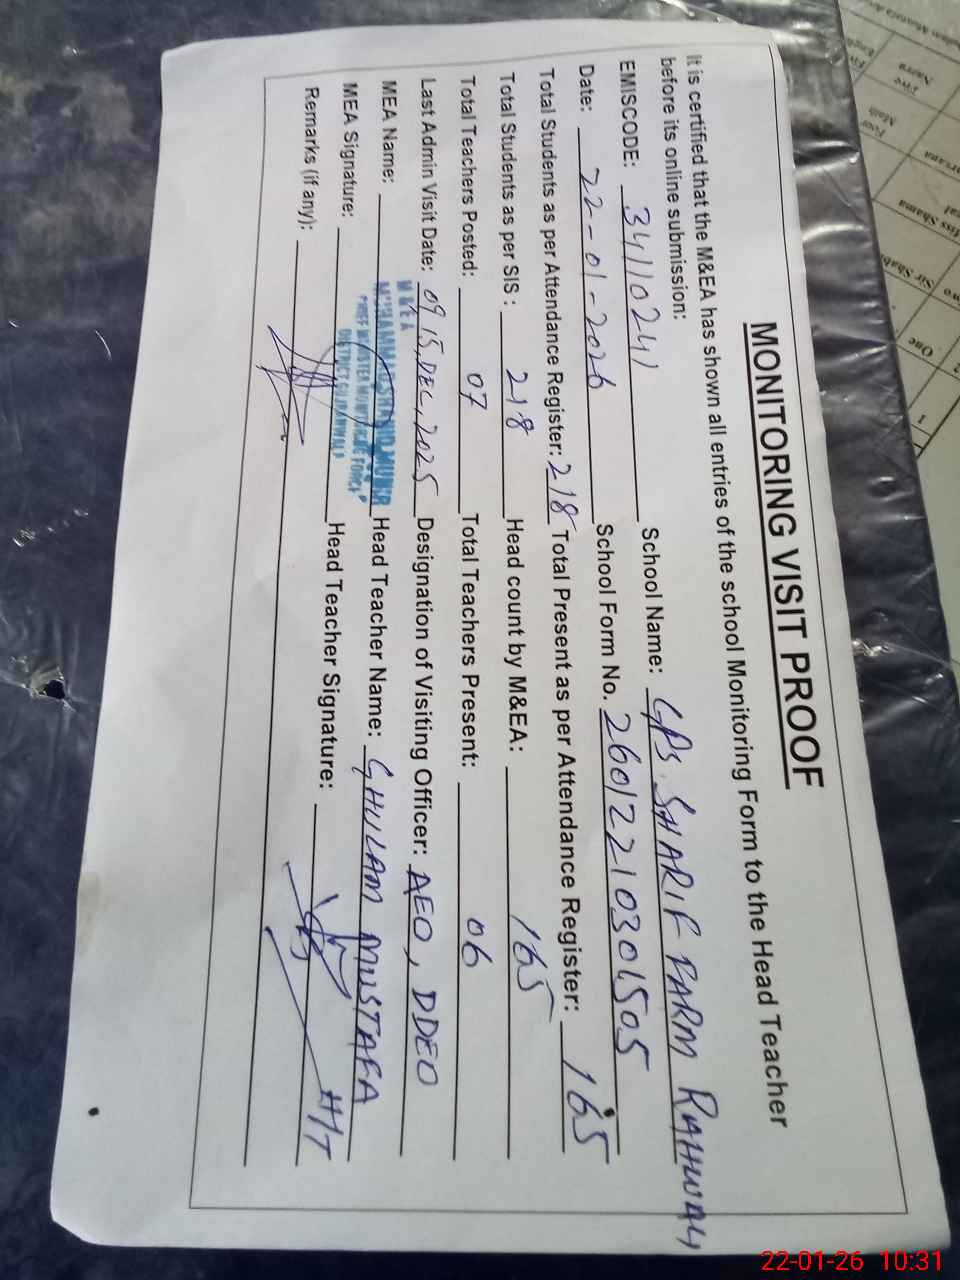 MONITORING VISIT PROOF
It is certified that the M&EA has shown all entries of the school Monitoring Form to the Head Teacher
before its online submission:
EMISCODE: 34110241 School Name: GPS SHARIF FARM RAHWALI
Date: 22-01-2026 School Form No. 26012210301505
Total Students as per Attendance Register: 218 Total Present as per Attendance Register: 165
Total Students as per SIS : 218 Head count by M&EA: 165
Total Teachers Posted: 07 Total Teachers Present: 06
Last Admin Visit Date: 09, 15, DEC, 2025 Designation of Visiting Officer: AEO, DDEO
M & E A
MEA Name: MUHAMMAD SHAHID MUNIR Head Teacher Name: GHULAM MUSTAFA
CHIEF MINISTER MONITORING FORCE
DISTRICT GUJRANWALA
MEA Signature: Head Teacher Signature: HT
Remarks (if any):
One
Two
Sir
Miss Shama
Four
Math
Five
22-01-26 10:31